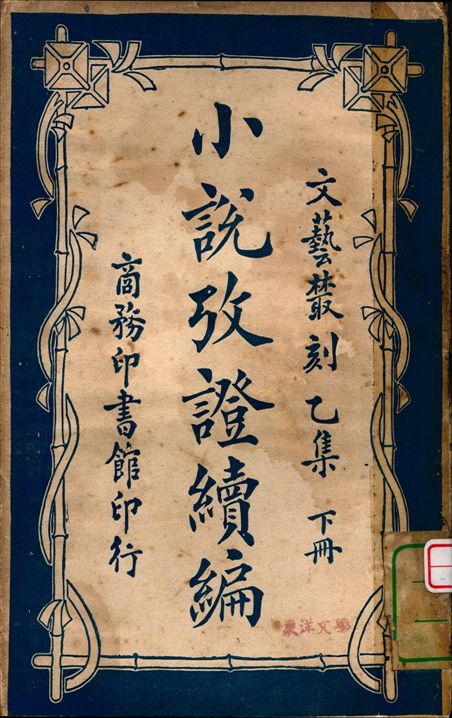 文藝叢刻乙集 下冊
小說攷證續編
商務印書館印行
東洋文學